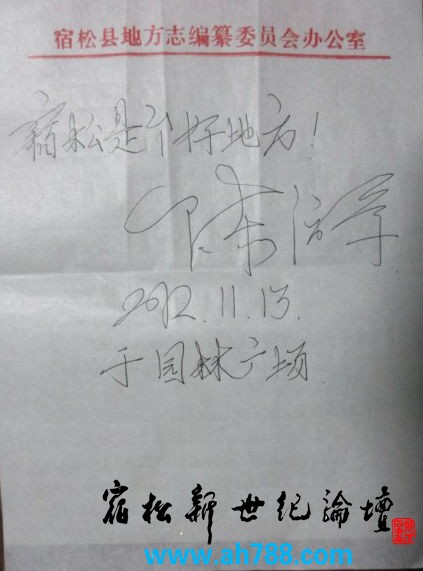 宿松县地方志编纂委员会办公室
宿松是个好地方！
2012.11.13.
于园林广场
宿松新世纪論壇
www.ah788.com